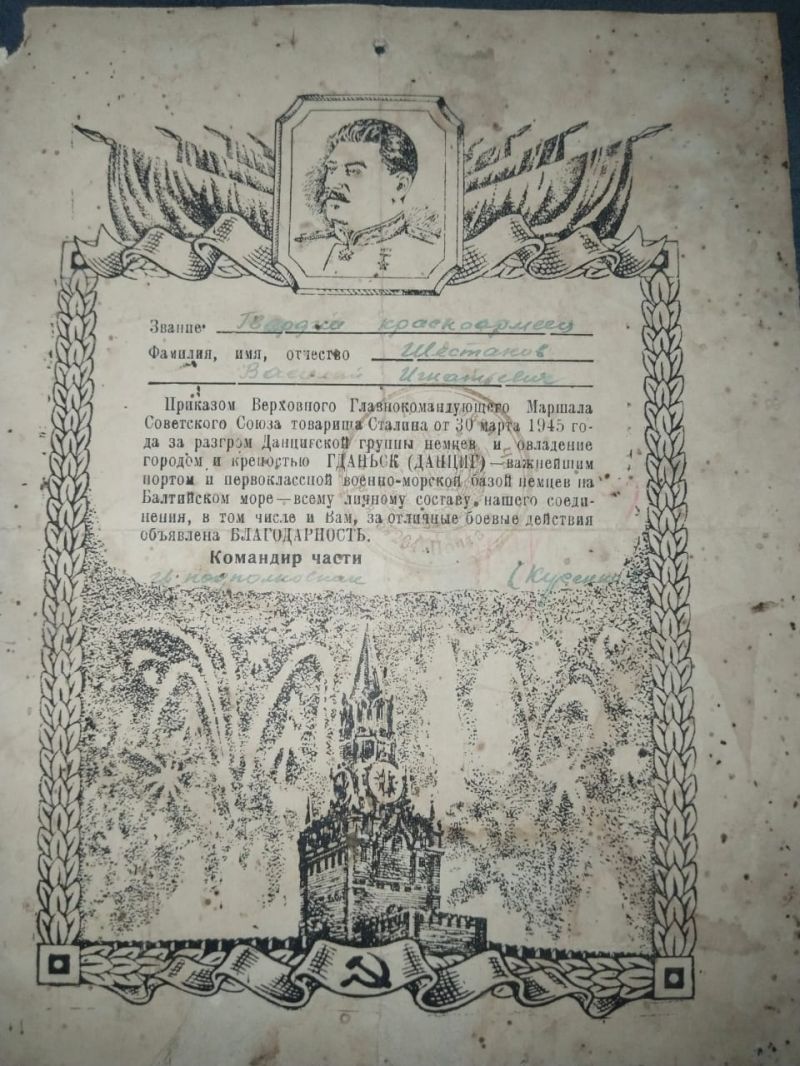 Звание Гвардии красноармеец
Фамилия, имя, отчество Шестаков
Василий Игнатьевич
Приказом Верховного Главнокомандующего Маршала
Советского Союза товарища Сталина от 30 марта 1945 го-
да за разгром Данцигской группы немцев и овладение
городом и крепостью ГДАНЬСК (ДАНЦИГ)—важнейшим
портом и первоклассной военно-морской базой немцев на
Балтийском море—всему личному составу нашего соеди-
нения, в том числе и Вам, за отличные боевые действия
объявлена БЛАГОДАРНОСТЬ.
Командир части
гв подполковник